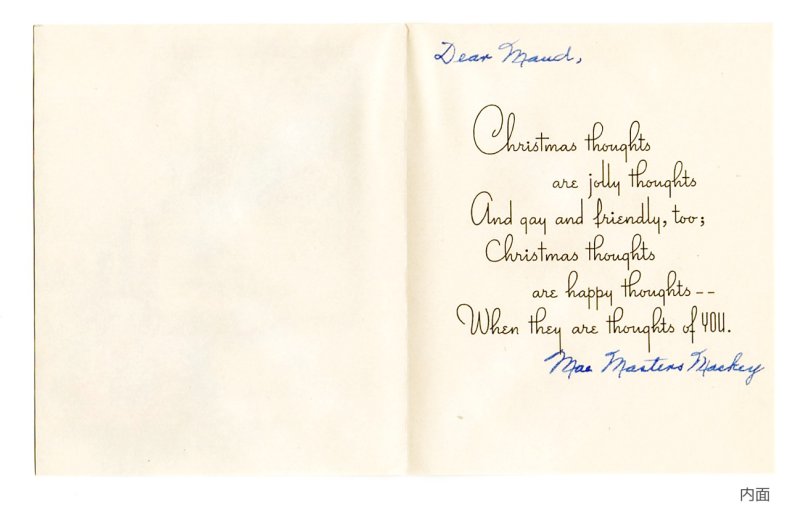 Dear Maud,
Christmas thoughts
are jolly thoughts
And gay and friendly, too;
Christmas thoughts
are happy thoughts--
When they are thoughts of YOU.
Mae Masters Mackey
内面